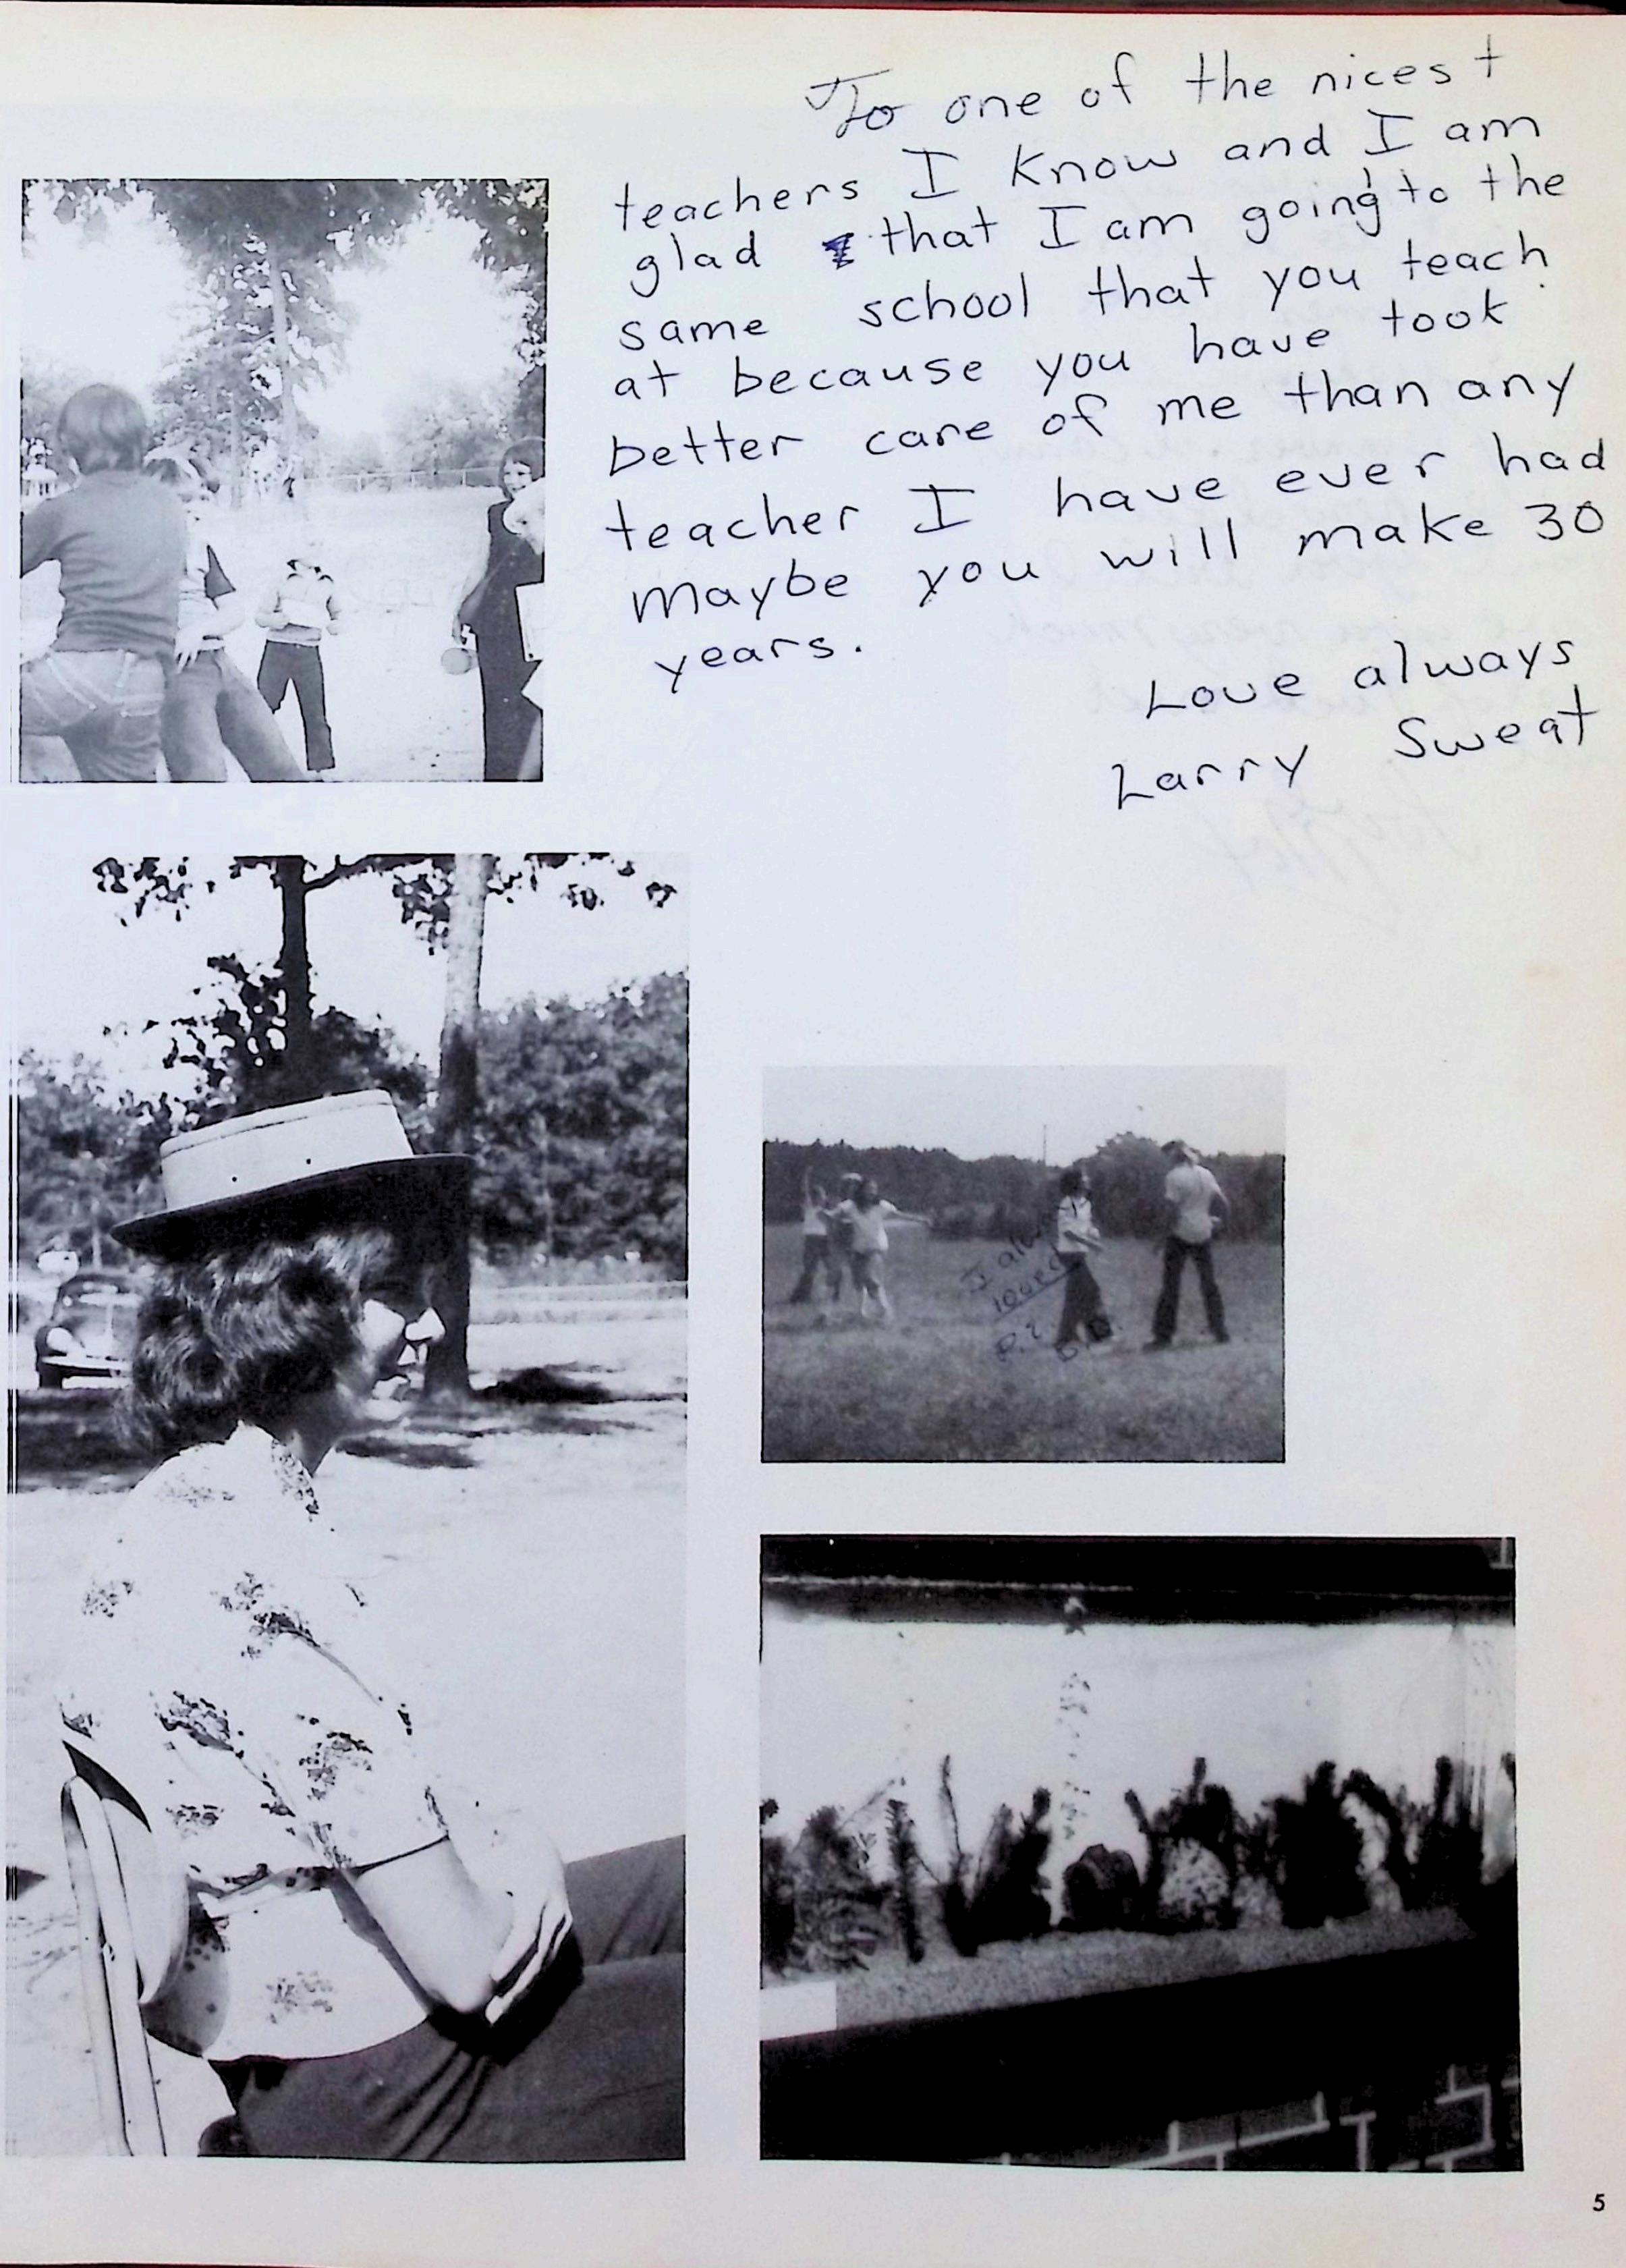 To one of the nicest
teachers I know and I am
glad that I am going to the
same school that you teach
at because you have took
better care of me than any
teacher I have ever had
maybe you will make 30
years.
Love always
Larry Sweat
I
5